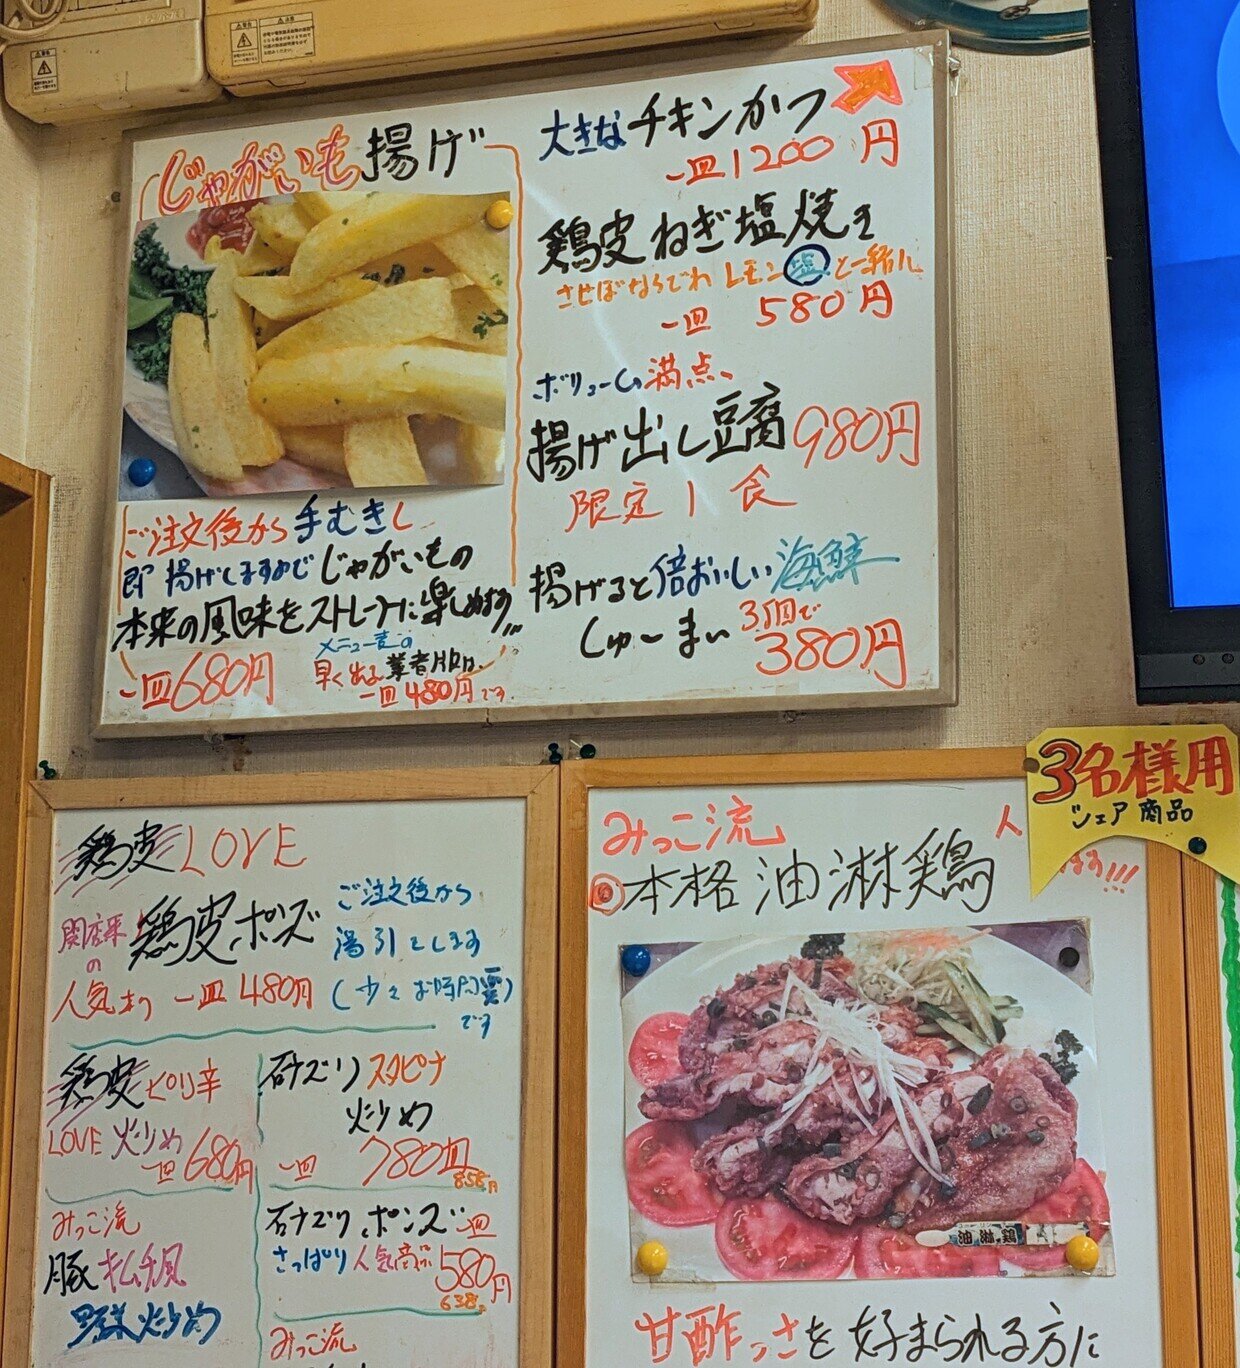 じゃがいも揚げ
ご注文後から手むきし
即揚げしますので じゃがいもの
本来の風味をストレートに楽しめます
一皿680円
メニュー表の
早く出る業者用は、
一皿480円です。
大きなチキンかつ
一皿1200円
鶏皮ねぎ塩焼き
させぼならでわ レモン塩と一緒に
一皿 580円
ボリューム満点、
揚げ出し豆腐980円
限定1食
揚げると倍おいしい海鮮
しゅーまい 3個で
380円
鶏皮 LOVE
開店来
の
人気あり
鶏皮ポンズ
一皿480円
ご注文後から
湯引きします
(少々お時間要)
です
鶏皮 ピリ辛
LOVE 炒め
一皿680円
砂ズリ スタミナ
炒め
一皿 780皿
858円
みっこ流
豚キムチ風
野菜炒め
砂ズリ ポンズ 一皿
さっぱり 人気商品 580円
638円
みっこ流
3名様用
シェア商品
みっこ流
本格油淋鶏
人
ます!!!
油淋鶏
甘酢っさを好まられる方に